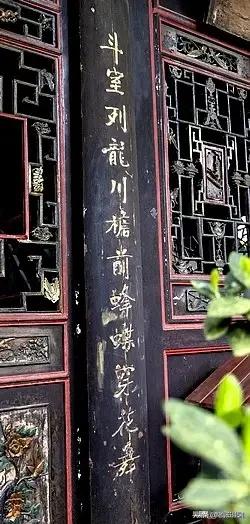 斗室列龍川檐前蜂蝶穿花舞